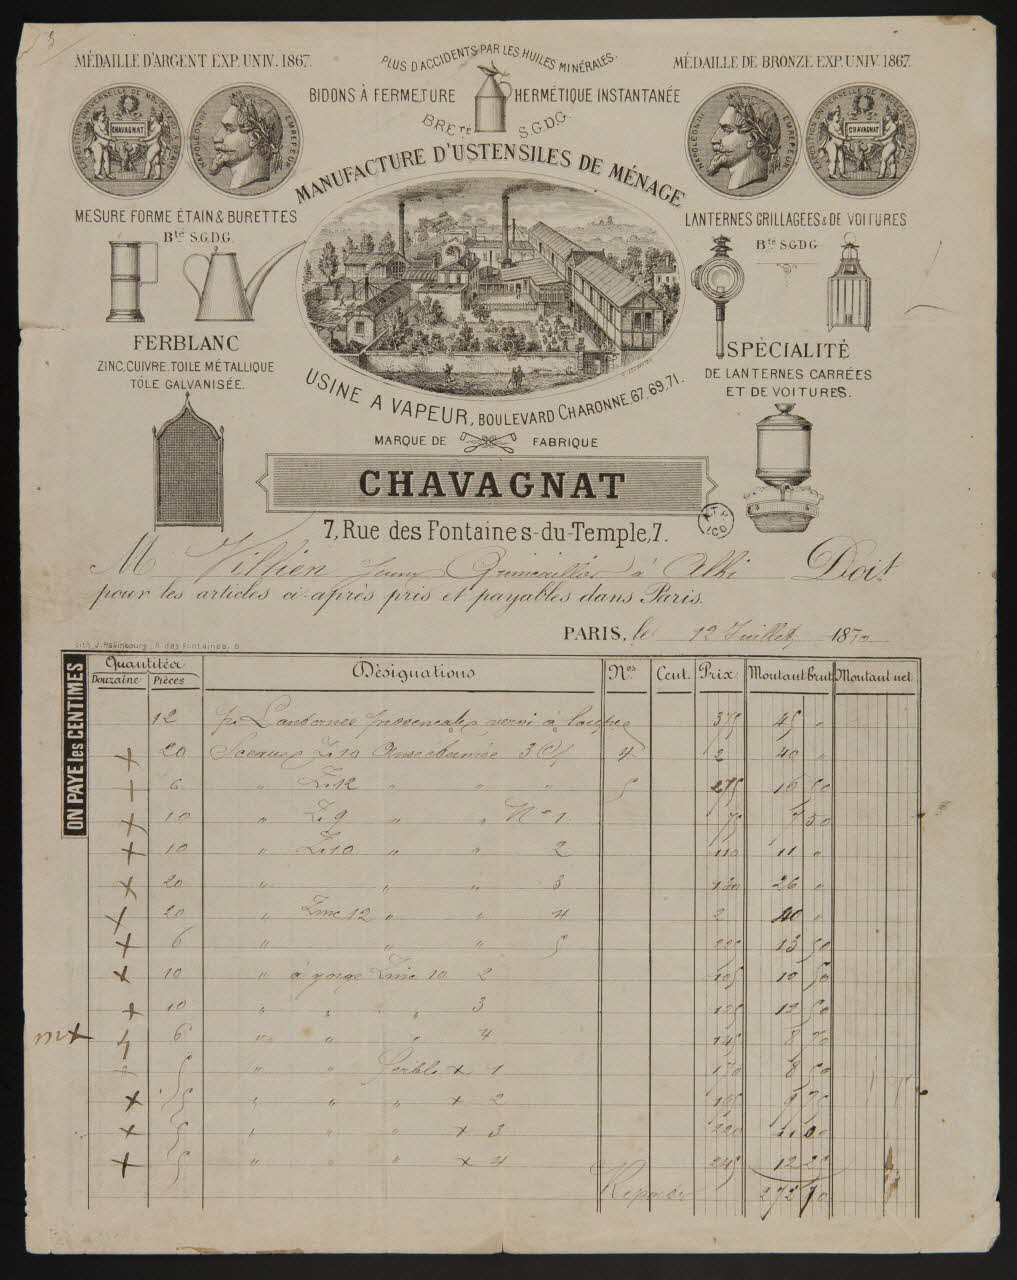 MÉDAILLE D'ARGENT EXP. UNIV. 1867.
PLUS D'ACCIDENTS PAR LES HUILES MINÉRALES.
MÉDAILLE DE BRONZE EXP. UNIV. 1867.
BIDONS À FERMETURE HERMÉTIQUE INSTANTANÉE
BRETé S.G.D.G.
CHAVAGNAT
NAPOLÉON III EMPEREUR
NAPOLÉON III EMPEREUR
CHAVAGNAT
MANUFACTURE D'USTENSILES DE MÉNAGE
MESURE FORME ÉTAIN & BURETTES
Bté S.G.D.G.
LANTERNES GRILLAGÉES & DE VOITURES
Bté S.G.D.G
FERBLANC
ZINC, CUIVRE, TOILE MÉTALLIQUE
TÔLE GALVANISÉE.
SPÉCIALITÉ
DE LANTERNES CARRÉES
ET DE VOITURES.
USINE A VAPEUR, BOULEVARD CHARONNE, 67, 69, 71.
MARQUE DE FABRIQUE
CHAVAGNAT
7, Rue des Fontaines-du-Temple, 7.
M Villien à Albi Doit
pour les articles ci-après pris et payables dans Paris.
PARIS, le 12 Juillet 187
Lith. J. Hakenbourg, R. des Fontaines, 6
ON PAYE les CENTIMES
Quantités Désignations Nos Cent. Prix Montant brut Montant net
Douzaine Pièces
12 Lanternes provençales verni à 375 45 "
20 Sceaux Z. 10 3 4 2 40 "
6 " Z. 12 " " " 5 275 16 50
10 " Z. 9 " " No 1 75 7 50
10 " Z. 10 " " 2 110 11 "
20 " " " 3 130 26 "
20 " Zinc 12 " " 4 2 40 "
6 " " " 5 225 13 50
10 " à gorge Zinc 10 2 105 10 50
10 " " " 3 125 12 50
6 " " " 4 145 8 70
5 " " + 1 170 8 50
5 " " " + 2 195 9 75
5 " " " + 3 220 11 00
5 " " " + 4 245 12 25
272 70